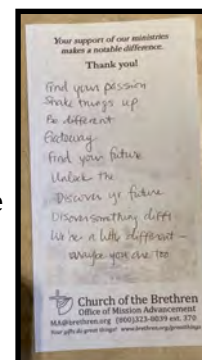 Your support of our ministries
makes a notable difference.
Thank you!
Find your passion
Shake things up
Be different
Find your future
Unlock the
Discover yr future
Discover something diff't
We're a little different –
maybe you are too
Church of the Brethren
Office of Mission Advancement
MA@brethren.org (800)323-8039 ext. 370
Your gifts do great things! www.brethren.org/greatthings
e